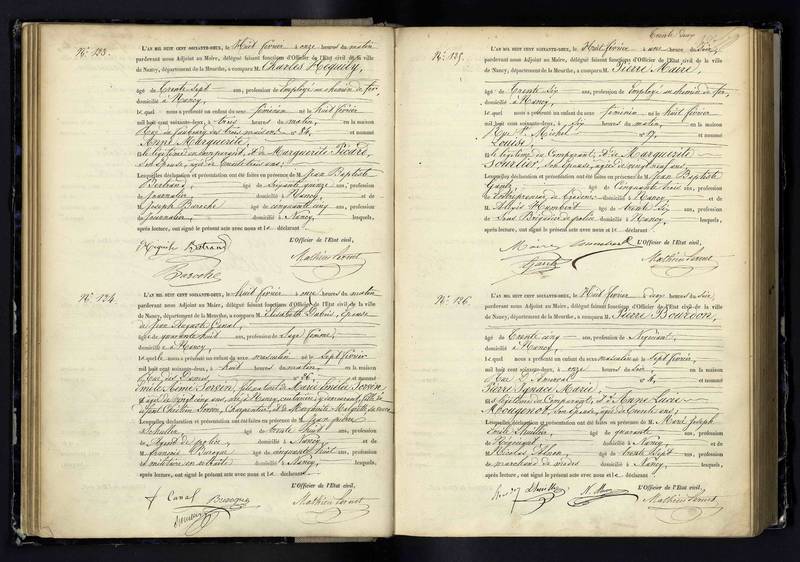 No. 123.
L'AN MIL HUIT CENT SOIXANTE-DEUX, le Huit février à onze heures du matin
pardevant nous Adjoint au Maire, délégué faisant fonctions d'Officier de l'Etat civil de la ville
de Nancy, département de la Meurthe, a comparu M. Charles Hequily,
âgé de Trente Sept ans, profession de Employé au chemin de fer,
domicilié à Nancy,
lequel nous a présenté un enfant du sexe féminin né le Huit février
mil huit cent soixante-deux, à trois heures du matin, en la maison
Rue du faubourg des trois maisons n° 84, et nommé
Anne Marguerite,
fille légitime du comparant, et de Marguerite Picard,
son épouse, âgée de trente trois ans;
Lesquelles déclaration et présentation ont été faites en présence de M. Jean Baptiste
Bertrand, âgé de Soixante quinze ans, profession
de Journalier, domicilié à Nancy, et de
M. Joseph Baroche âgé de cinquante cinq ans, profession
de Journalier, domicilié à Nancy, lesquels,
après lecture, ont signé le présent acte avec nous et le déclarant
L'Officier de l'Etat civil,
Bertrand
Baroche
No. 124.
L'AN MIL HUIT CENT SOIXANTE-DEUX, le Huit février à onze heures du matin
pardevant nous Adjoint au Maire, délégué faisant fonctions d'Officier de l'Etat civil de la ville
de Nancy, département de la Meurthe, a comparu M. Elisabeth Dubois, épouse
de Jean Canal,
âgée de quarante huit ans, profession de Sage femme,
domiciliée à Nancy,
lequelle nous a présenté un enfant du sexe masculin né le Sept février
mil huit cent soixante-deux, à huit heures du matin, en la maison
Rue des Dames n° 36, et nommé
Lesquelles déclaration et présentation ont été faites en présence de M. Jean pierre
Schuller âgé de trente huit ans, profession
de Agent de police domicilié à Nancy et de
M. François Buregue âgé de cinquante huit ans, profession
de militaire en retraite domicilié à Nancy, lesquels,
après lecture, ont signé le présent acte avec nous et le déclarant
L'Officier de l'Etat civil,
Canal
Trente deux
No. 125.
L'AN MIL HUIT CENT SOIXANTE-DEUX, le Huit février à une heure du soir,
pardevant nous Adjoint au Maire, délégué faisant fonctions d'Officier de l'Etat civil de la ville
de Nancy, département de la Meurthe, a comparu M. Pierre Maire,
âgé de Trente Six ans, profession de Employé au chemin de fer,
domicilié à Nancy,
lequel nous a présenté un enfant du sexe féminin né le Huit février
mil huit cent soixante-deux, à six heures du matin, en la maison
Rue St. Michel n° 19, et nommé
Louise,
fille légitime du Comparant, et de Marguerite
son épouse, âgée de vingt neuf ans,
Lesquelles déclaration et présentation ont été faites en présence de M. Jean Baptiste
âgé de Cinquante trois ans, profession
de Entrepreneur domicilié à Nancy et de
M. Humbert âgé de trente Six ans, profession
de Sous Brigadier de police domicilié à Nancy, lesquels,
après lecture, ont signé le présent acte avec nous et le déclarant
L'Officier de l'Etat civil,
Maire
No. 126.
L'AN MIL HUIT CENT SOIXANTE-DEUX, le Huit février à deux heures du soir
pardevant nous Adjoint au Maire, délégué faisant fonctions d'Officier de l'Etat civil de la ville
de Nancy, département de la Meurthe, a comparu M. Pierre Bourdon,
âgé de Trente cinq ans, profession de
domicilié à Nancy
lequel nous a présenté un enfant du sexe masculin né le Sept février
mil huit cent soixante-deux, à onze heures du soir, en la maison
n° 4, et nommé
Pierre Ignace Marie,
fils légitime du Comparant, et d'Anne Luise
Mougenot, son épouse, âgée de trente ans;
Lesquelles déclaration et présentation ont été faites en présence de M. Marie Joseph
Emile Thuillier âgé de quarante ans, profession
de Négociant domicilié à Nancy et de
M. Nicolas âgé de trente Sept ans, profession
de marchand de domicilié à Nancy, lesquels,
après lecture, ont signé le présent acte avec nous et le déclarant
L'Officier de l'Etat civil,